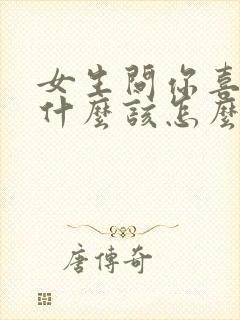 女生問你喜
什麼該怎麼
唐傳奇